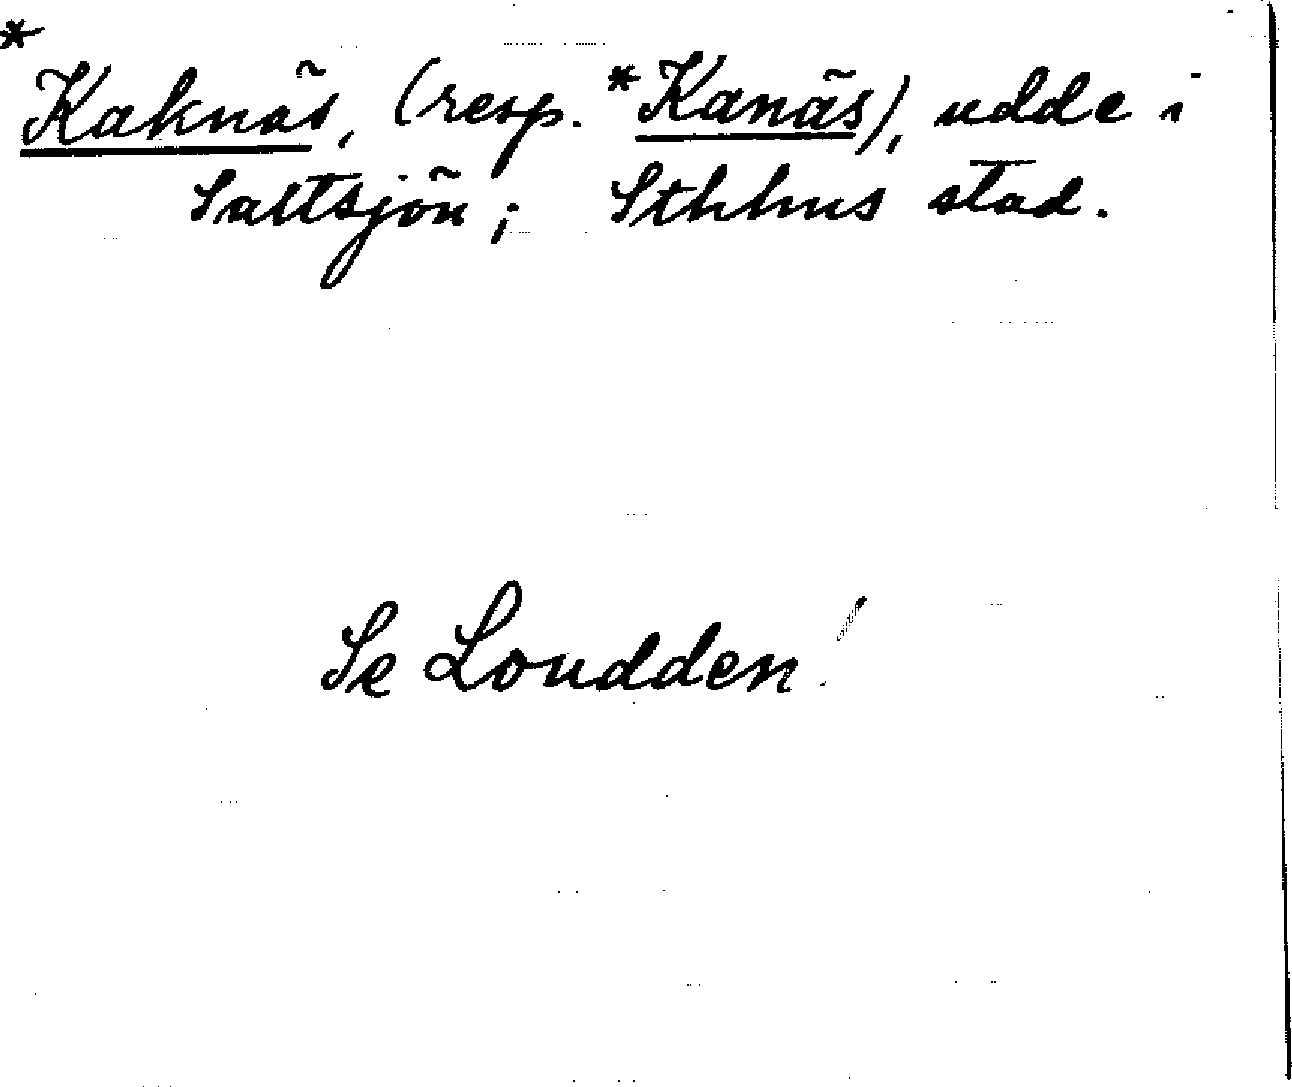 *Kaknäs, (resp. *Kanäs), udde i
Saltsjön; Sthlms stad.
Se Loudden!